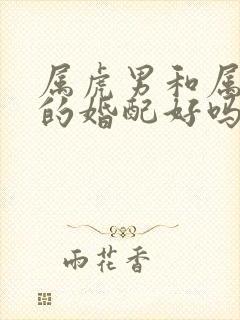 属虎男和属
的婚配好吗
雨花香